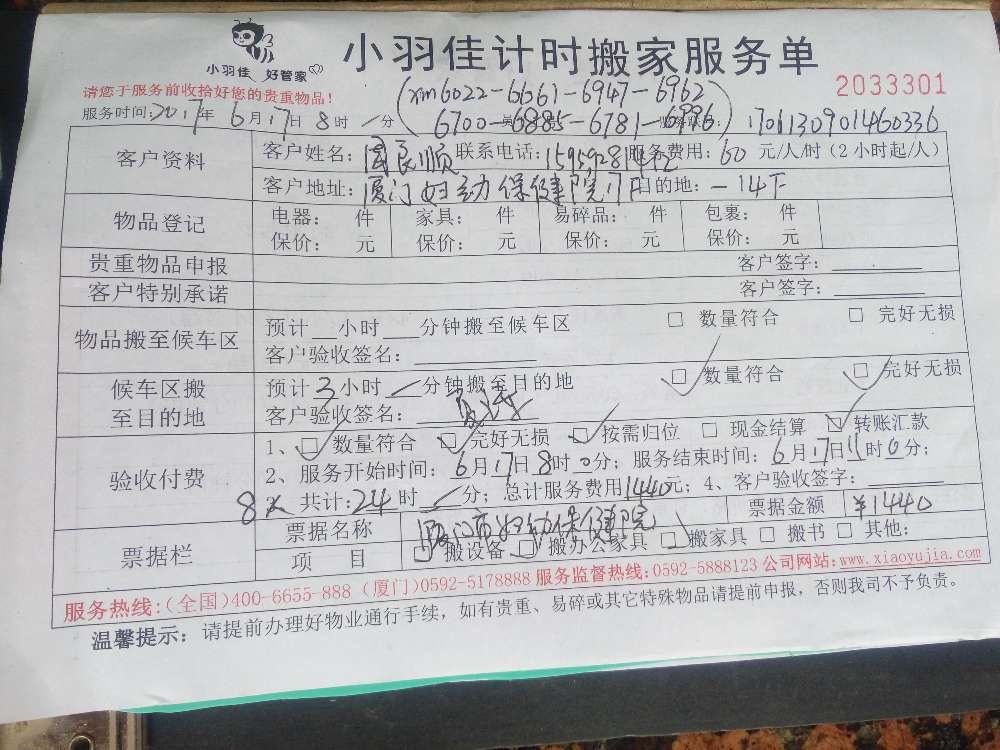 小羽佳 好管家
小羽佳计时搬家服务单
请您于服务前收拾好您的贵重物品!
2033301
(xm6022-6661-6947-6962
服务时间:2017年6月17日8时/分
6700-6885-6781-6996)
1701130901460336
客户资料
客户姓名: 良顺 联系电话: 服务费用:60元/人/时(2小时起/人)
客户地址:厦门妇幼保健院 目的地:-14下
物品登记
电器: 件 家具: 件 易碎品: 件 包裹: 件
保价: 元 保价: 元 保价: 元 保价: 元
贵重物品申报 客户签字:
客户特别承诺 客户签字:
物品搬至候车区
预计 小时 分钟搬至候车区 □ 数量符合 □ 完好无损
客户验收签名:
候车区搬
至目的地
预计3小时/分钟搬至目的地 ☑数量符合 ☑完好无损
客户验收签名:
验收付费
1、☑数量符合 ☑完好无损 ☑按需归位 □ 现金结算 ☑转账汇款
2、服务开始时间:6月17日8时0分; 服务结束时间:6月17日11时0分;
8人 共计:24时/分; 总计服务费用1440元; 4、客户验收签字:
票据栏
票据名称 厦门市妇幼保健院 票据金额 ¥1440
项 目 □ 搬设备 □ 搬办公家具 ☑搬家具 □ 搬书 □ 其他:
服务热线:(全国)400-6655-888 (厦门)0592-5178888 服务监督热线:0592-5888123 公司网站:www.xiaoyujia.com
温馨提示: 请提前办理好物业通行手续, 如有贵重、易碎或其它特殊物品请提前申报, 否则我司不予负责。